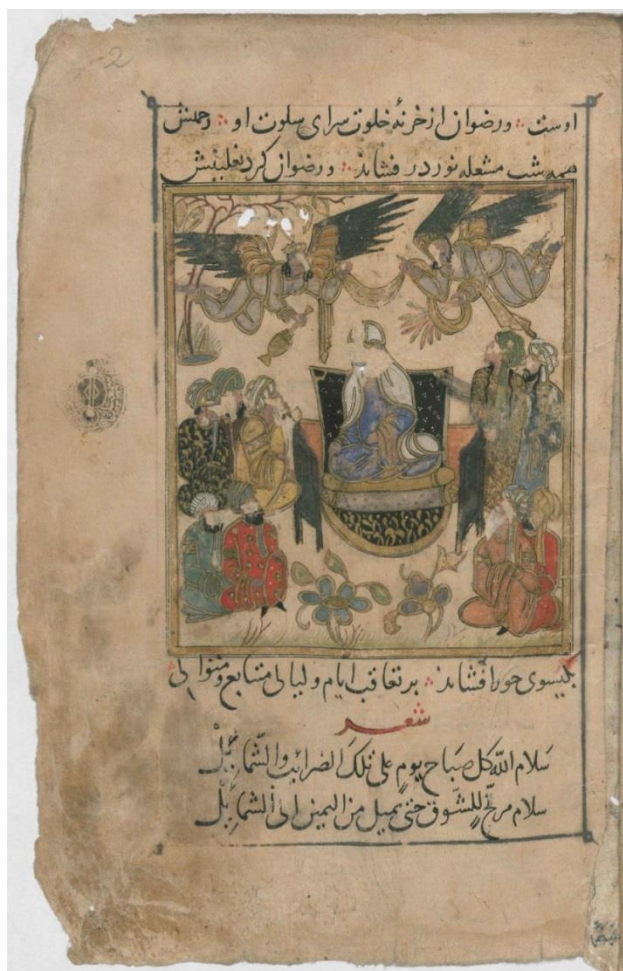 2
اوست ؞ ورضوان از خزنهٔ خلوت سرای سلوت او ؞ زحلش
همه شب مشعله نور در فشاند ؞ ورضوان کرد نعلینش
بگیسوی حور افشاند ؞ بر تعاقب ایام ولیالی متتابع ومتوالی
شعر
سَلام الله کل صَباح یومٍ علی تلکَ الضرائبِ والشّمائِل
سلام مرنّحٍ للشّوق حتی یمیل من الیمین الی الشمائِل